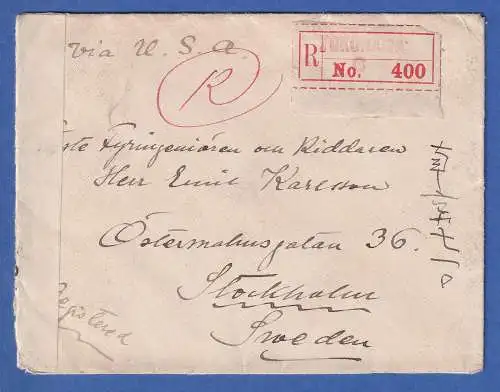 via U.S.A.
R
YOKOHAMA
R No. 400
ste Fyringeniören om Riddaren
Herr Emil Karlsson
Östermalmsgatan 36.
Stockholm
Sweden
Registered